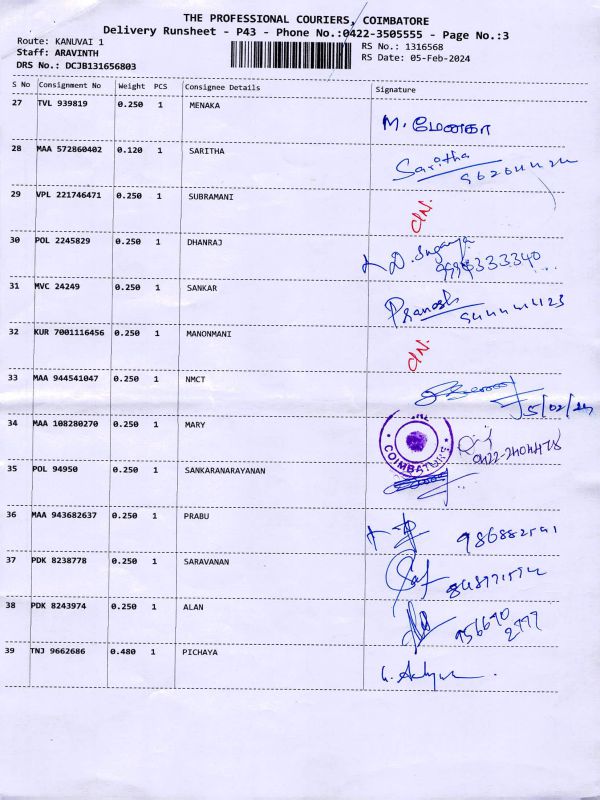 THE PROFESSIONAL COURIERS, COIMBATORE
Delivery Runsheet - P43 - Phone No.:0422-3505555 - Page No.:3
Route: KANUVAI 1
RS No.: 1316568
Staff: ARAVINTH
RS Date: 05-Feb-2024
DRS No.: DCJB131656803
S No Consignment No Weight PCS Consignee Details Signature
27 TVL 939819 0.250 1 MENAKA
M. மேனகா
28 MAA 572860402 0.120 1 SARITHA
Saritha
29 VPL 221746471 0.250 1 SUBRAMANI
30 POL 2245829 0.250 1 DHANRAJ
31 MVC 24249 0.250 1 SANKAR
Pranosh
32 KUR 7001116456 0.250 1 MANONMANI
33 MAA 944541047 0.250 1 NMCT
5/02/24
34 MAA 108280270 0.250 1 MARY
COIMBATORE
0422-2404478
35 POL 94950 0.250 1 SANKARANARAYANAN
36 MAA 943682637 0.250 1 PRABU
37 PDK 8238778 0.250 1 SARAVANAN
38 PDK 8243974 0.250 1 ALAN
39 TNJ 9662686 0.480 1 PICHAYA